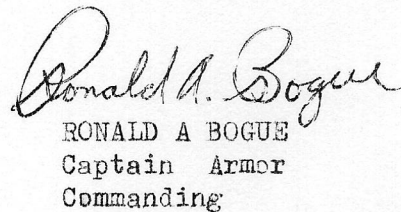 Ronald A. Bogue
RONALD A BOGUE
Captain Armor
Commanding